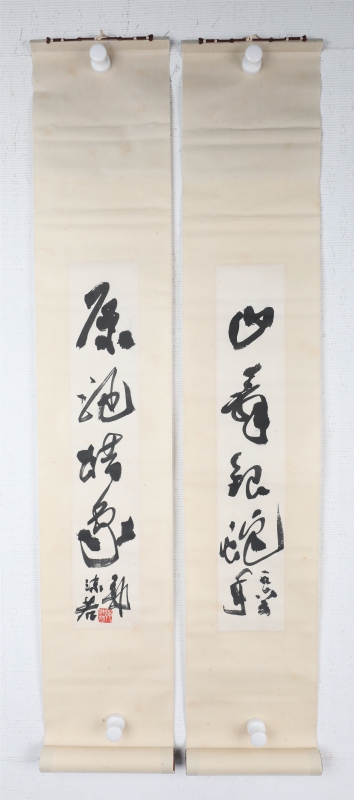 山舞銀蛇
一九六五
年
原馳蜡象
郭
沫若